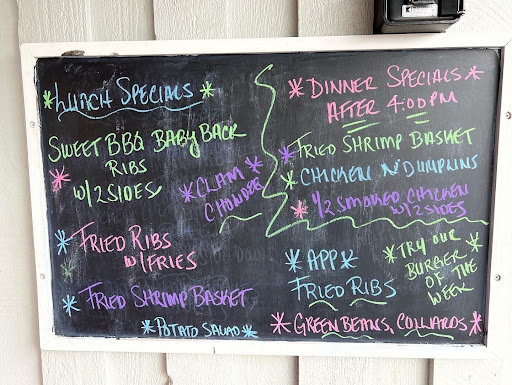 *LUNCH SPECIALS*
SWEET BBQ BABY BACK
RIBS
* W/2 SIDES
*CLAM*
CHOWDER
*FRIED RIBS
* W/FRIES
*FRIED SHRIMP BASKET
*POTATO SALAD*
*DINNER SPECIALS*
AFTER 4:00PM
*FRIED SHRIMP BASKET
*CHICKEN N' DUMPLINS
*1/2 SMOKED CHICKEN
W/2 SIDES
*APP*
FRIED RIBS
*TRY OUR*
BURGER
OF THE
WEEK
*GREEN BEANS, COLLARDS*